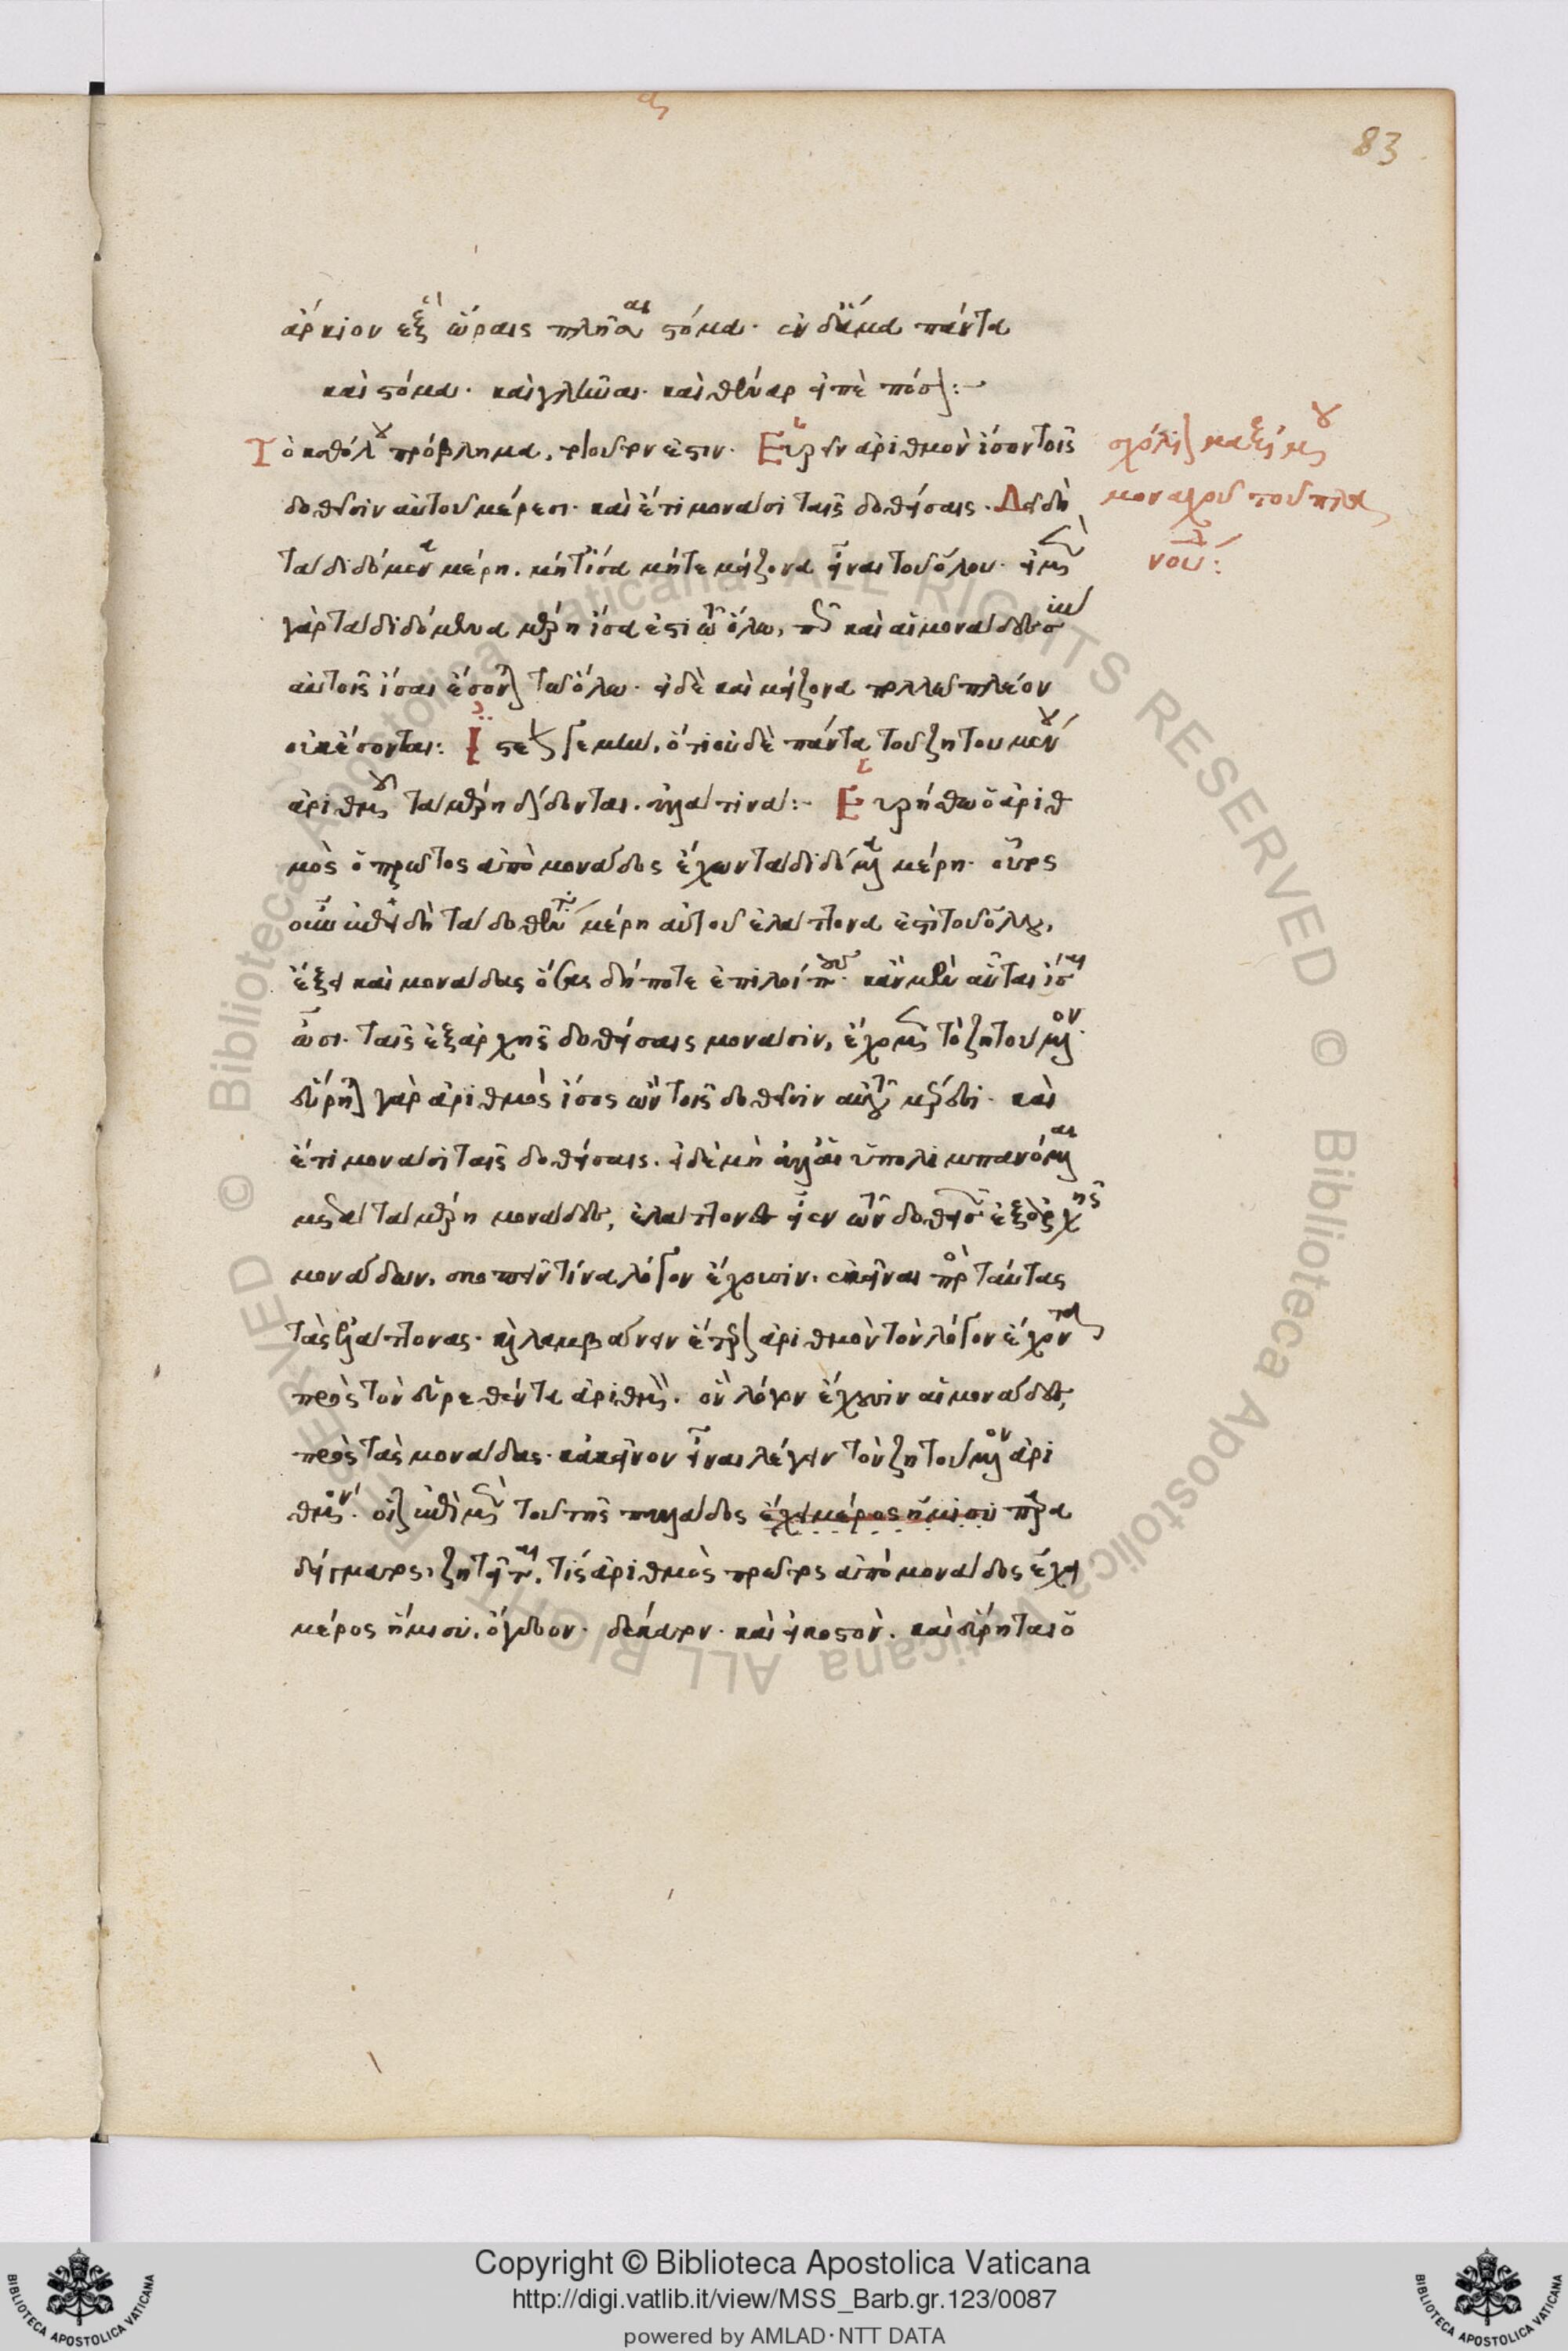 83
ἄρκιον ἓξ ὥραις πλῆσαι στόμα. σὺν δ' ἅμα πάντα
καὶ στόμα. καὶ γλῆναι. καὶ θέναρ εἰπὲ πόσ:
Τὸ καθόλου πρόβλημα, τοιοῦτον ἐστιν. Εὑρεῖν ἀριθμὸν ἴσον τοῖς
δοθεῖσιν αὐτοῦ μέρεσι. καὶ ἔτι μονάσι ταῖς δοθείσαις. Δεῖ δὴ
τὰ διδόμενα μέρη. μήτ' ἴσα μήτε μείζονα εἶναι τοῦ ὅλου. εἰ μὲν
γὰρ τὰ διδόμενα μέρη ἴσα ἐστὶ τῷ ὅλω, καὶ αἱ μονάδες
αὐτοῖς ἴσαι ἔσονται τῷ ὅλω. εἰ δὲ καὶ μείζονα πολλῶ πλέον
οὐκ ἔσονται: Ἰστέον ὅτι οὐδὲ πάντα τοῦ ζητουμένου
ἀριθμοῦ τὰ μέρη δίδονται. ἀλλά τινα: Εὑρήσθω ὁ ἀριθ
μὸς ὁ πρῶτος ἀπὸ μονάδος ἔχων τὰ διδόμενα μέρη. οὗτος
οὖν ἐπειδὴ τὰ δοθέντα μέρη αὐτοῦ ἐλάττονα ἐστὶ τοῦ ὅλου,
ἕξει καὶ μονάδας ὅσας δήποτε ἐπιλοίπους. κἂν μὲν αὗται ἴσαι
ὦσι. ταῖς ἐξαρχῆς δοθείσαις μονάσιν, ἔχομεν τὸ ζητούμενον.
εὕρηται γὰρ ἀριθμὸς ἴσος ὢν τοῖς δοθεῖσιν αὐτοῦ μέρεσι. καὶ
ἔτι μονάσι ταῖς δοθείσαις. εἰ δὲ μὴ ἀλλ' αἱ ὑπολιμπανόμεναι
μετὰ τὰ μέρη μονάδες, ἐλάττονες εἶεν τῶν δοθεισῶν ἐξ ἀρχῆς
μονάδων, σκοπεῖν τίνα λόγον ἔχουσιν. ἐκεῖναι πρὸς ταύτας
τὰς ἐλάττονας. καὶ λαμβάνειν ἕτερον ἀριθμὸν τὸν λόγον ἔχοντα
πρὸς τὸν εὑρεθέντα ἀριθμὸν. ὃν λόγον ἔχουσιν αἱ μονάδες,
πρὸς τὰς μονάδας. κἀκεῖνον εἶναι λέγειν τὸν ζητούμενον ἀρι
θμόν. οἷον ἐπὶ μὲν τοῦ τῆς παλλάδος ἔχει μέρος ἥμισυ παρα
δείγματος, ζητεῖται. τίς ἀριθμὸς πρῶτος ἀπὸ μονάδος ἔχει
μέρος ἥμισυ, ὄγδοον. δέκατον. καὶ εἰκοστὸν. καὶ εὕρηται ὁ
σχόλιον μαξίμου
μοναχοῦ τοῦ πλα
νούδ:
Copyright © Biblioteca Apostolica Vaticana
http://digi.vatlib.it/view/MSS_Barb.gr.123/0087
powered by AMLAD·NTT DATA
BIBLIOTECA APOSTOLICA VATICANA
BIBLIOTECA APOSTOLICA VATICANA
© Biblioteca Apostolica Vaticana ALL RIGHTS RESERVED
© Biblioteca Apostolica Vaticana ALL RIGHTS RESERVED